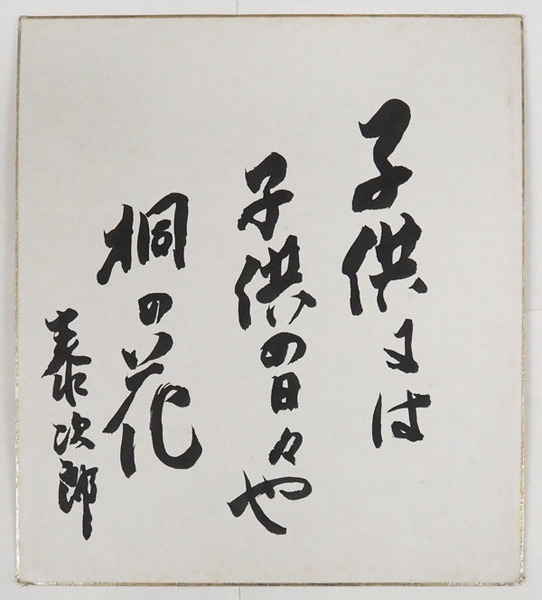 子供には
子供の日々や
桐の花
泰次郎